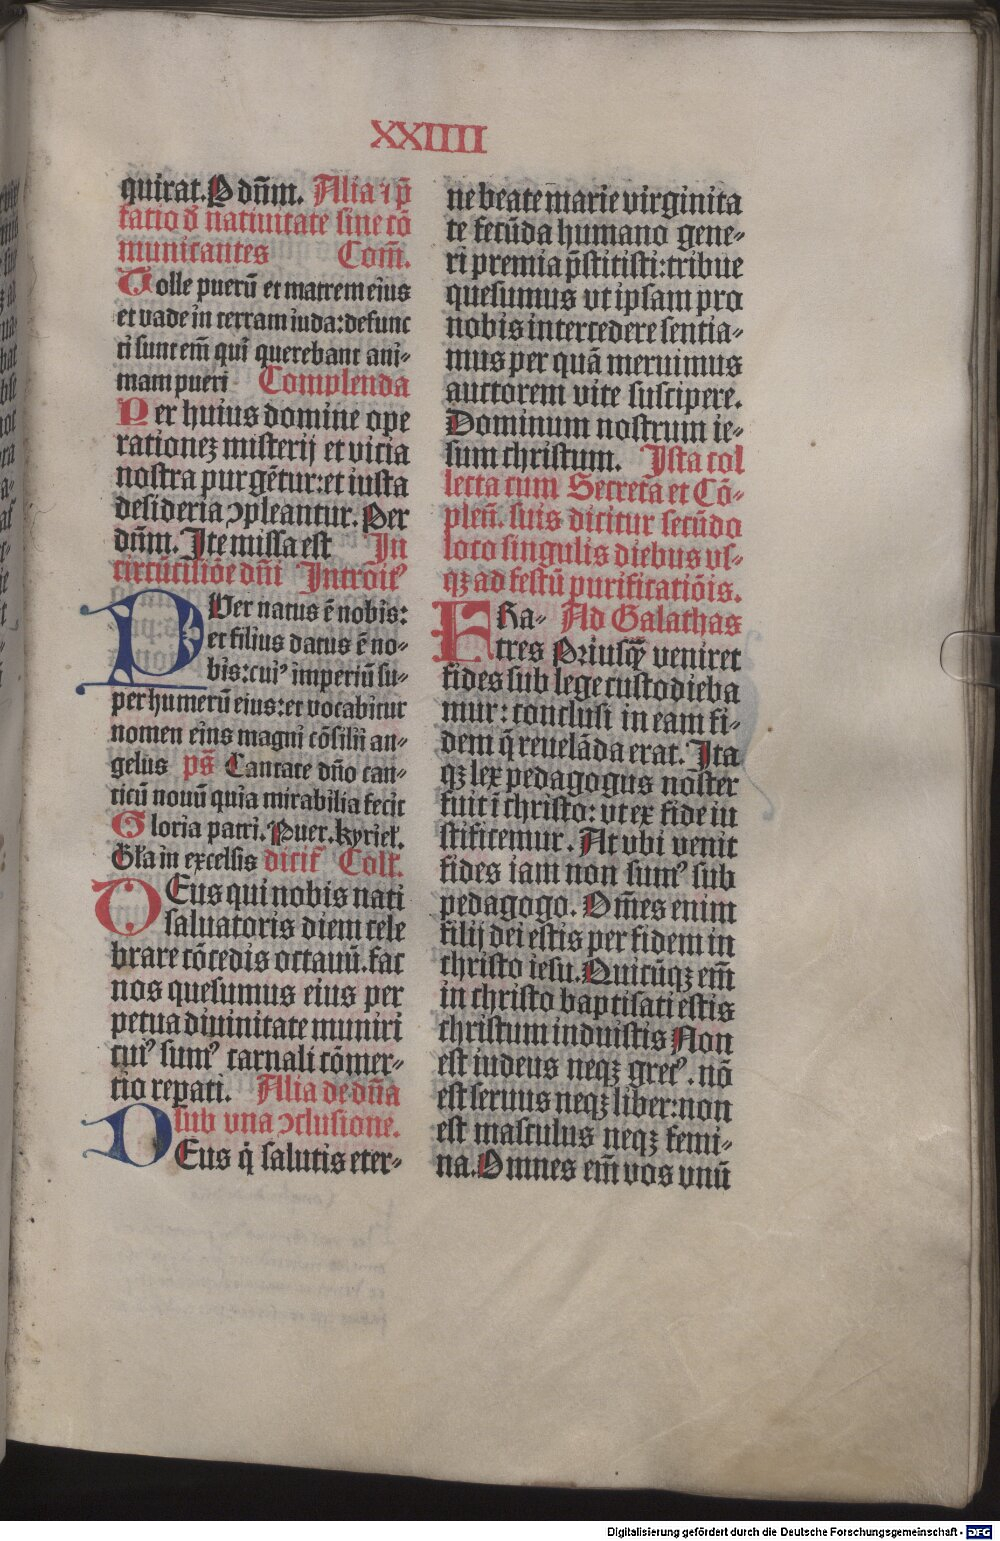 XXIIII
quirat. P dn̄m. Alia ⁊ p̄
fatio d̄ natiuitate sine cō
municantes Com̄.
Tolle puerū et matrem eius
et vade in terram iuda: defunc
ti sunt em̄ qui querebant ani-
mam pueri Complenda
Per huius domine ope
rationeꝫ misterij et vicia
nostra purgētur: et iusta
desideria ↄpleantur. Per
dn̄m. Ite missa est In
circūcisiōe dn̄i Introitꝰ
PUer natus ē nobis:
et filius datus ē no-
bis: cuiꝰ imperiū su-
per humerū eius: et vocabitur
nomen eius magni cōsilii an-
gelus ps̄ Cantate dn̄o can-
ticū nouū quia mirabilia fecit
Gloria patri. Puer. kyriel̄.
Gl̄a in excelsis dicit᷑ Coll̄.
DEus qui nobis nati
saluatoris diem cele
brare cōcedis octauū. fac
nos quesumus eius per
petua diuinitate muniri
cuiꝰ sumꝰ carnali cōmer-
cio repati. Alia de dn̄a
sub vna ↄclusione.
DEus q̇ salutis eter-
ne beate marie virginita
te fecūda humano gene-
ri premia p̄stitisti: tribue
quesumus vt ipsam pro
nobis intercedere sentia-
mus per quā meruimus
auctorem vite suscipere.
Dominum nostrum ie-
sum christum. Ista col
lecta cum Secreta et Cō-
plen̄. suis dicitur secūdo
loco singulis diebus vs-
qꝫ ad festū purificatiōis.
FRa- Ad Galathas
tres Priusqꝫ veniret
fides sub lege custodieba
mur: conclusi in eam fi-
dem q̄ reuelāda erat. Ita
qꝫ lex pedagogus nōster
fuit ī christo: vt ex fide iu
stificemur. At vbi venit
fides iam non sumꝰ sub
pedagogo. Om̄es enim
filij dei estis per fidem in
christo iesu. Quicūqꝫ em̄
in christo baptisati estis
christum induistis Non
est iudeus neqꝫ grecꝰ. nō
est seruus neqꝫ liber: non
est masculus neqꝫ femi-
na. Omnes em̄ vos vnū
Digitalisierung gefördert durch die Deutsche Forschungsgemeinschaft - DFG